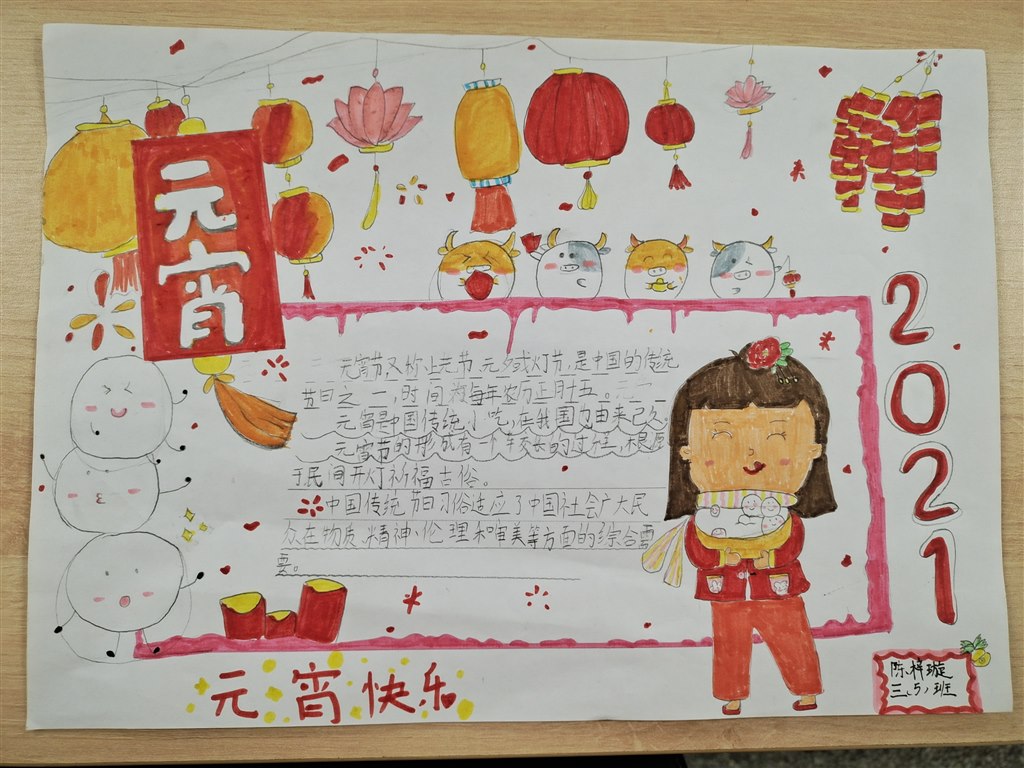 元宵
元宵节又称上元节、元夕或灯节,是中国的传统
节日之一,时间为每年农历正月十五。
元宵是中国传统小吃,在我国也由来已久。
元宵节的形成有一个较长的过程,根原
于民间开灯祈福古俗。
中国传统节日习俗适应了中国社会广大民
众在物质、精神、伦理和审美等方面的综合需
要。
2021
元宵快乐
陈梓璇
三、5、班